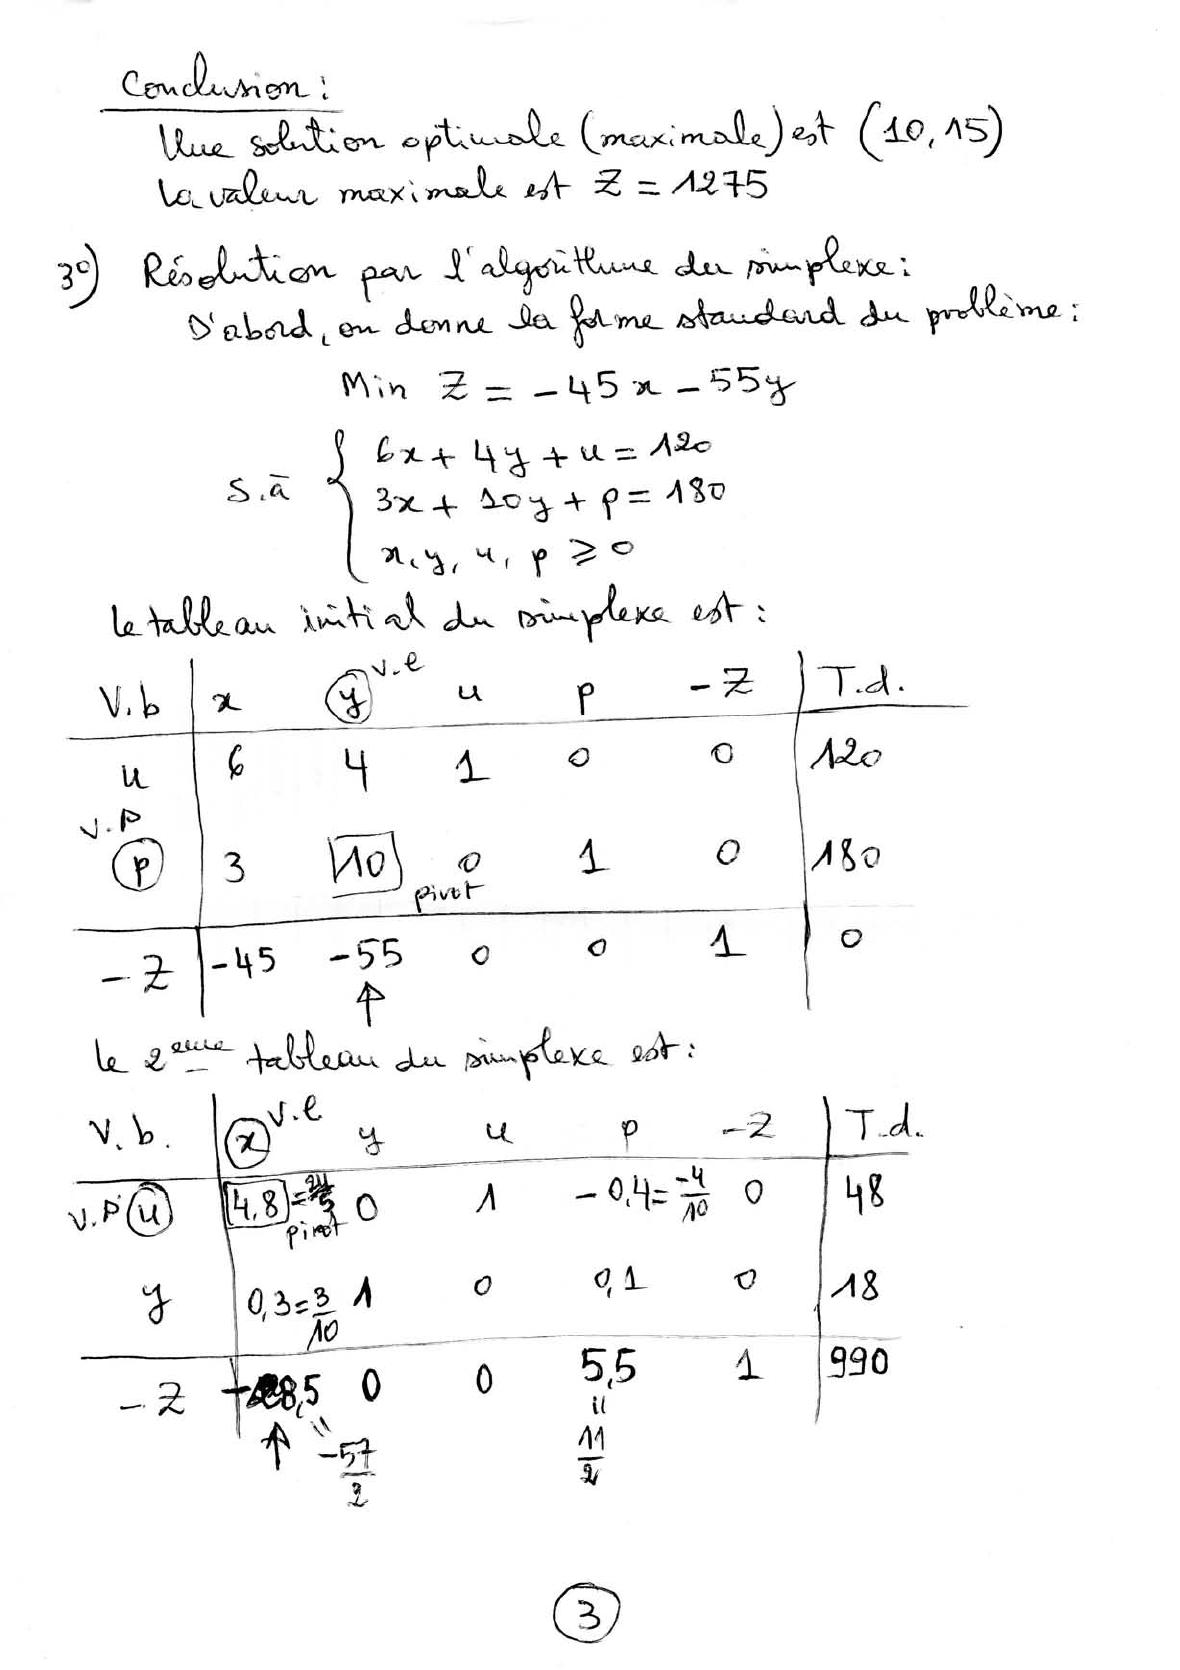 Conclusion :
Une solution optimale (maximale) est (10, 15)
La valeur maximale est Z = 1275
3°) Résolution par l'algorithme du simplexe :
D'abord, on donne la forme standard du problème :
Min Z = -45x - 55y
s.à { 6x + 4y + u = 120
3x + 10y + p = 180
x, y, u, p ⩾ 0
Le tableau initial du simplexe est :
V.b x y v.e u p -Z T.d.
u 6 4 1 0 0 120
v.p
p 3 10 pivot 0 1 0 180
-Z -45 -55 0 0 1 0
↑
Le 2ème tableau du simplexe est :
V.b. x v.e y u p -Z T.d.
v.p u 4,8 = 24/5 pivot 0 1 -0,4 = -4/10 0 48
y 0,3 = 3/10 1 0 0,1 0 18
-Z -28,5 0 0 5,5 1 990
↑ = -57/2 = 11/2
3